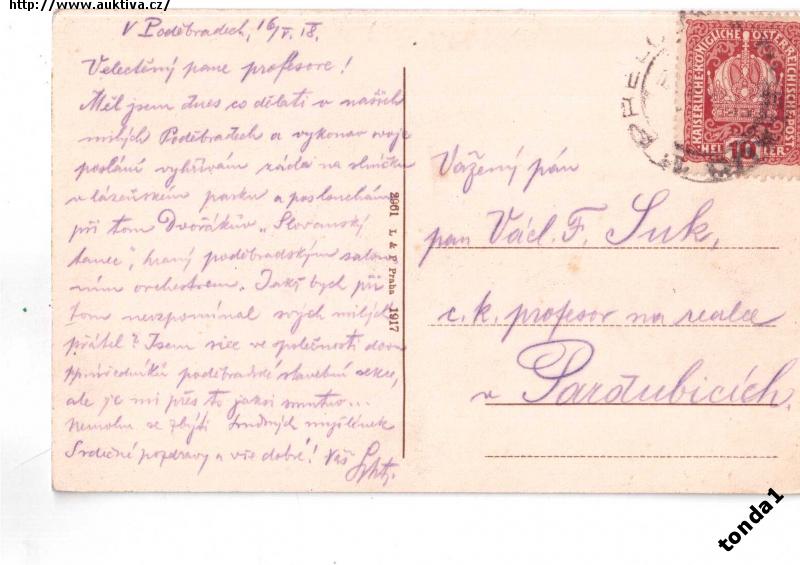 http://www.auktiva.cz/
V Poděbradech, 16/V. 18.
Velectěný pane profesore!
Měl jsem dnes co dělati v našich
milých Poděbradech a vykonav svoje
poslání vyhřívám záda na sluníčku
v lázeňském parku a poslouchám
při tom Dvořákův „Slovanský
tanec", hraný poděbradským salon-
ním orchestrem. Jakž bych při
tom nevzpomínal svých milých
přátel? Jsem sice ve společnosti dvou
úředníků poděbradské stavební sekce,
ale je mi přes to jaksi smutno...
nemohu se zbýti trudných myšlének
Srdečné pozdravy a vše dobré! Váš
2961 L & P Praha 1917
KAISERLICHE KÖNIGLICHE ÖSTERREICHISCHE POST
HELLER 10
Vážený pán
pan Václ. F. Suk,
c. k. profesor na realce
v Pardubicích.
tonda1